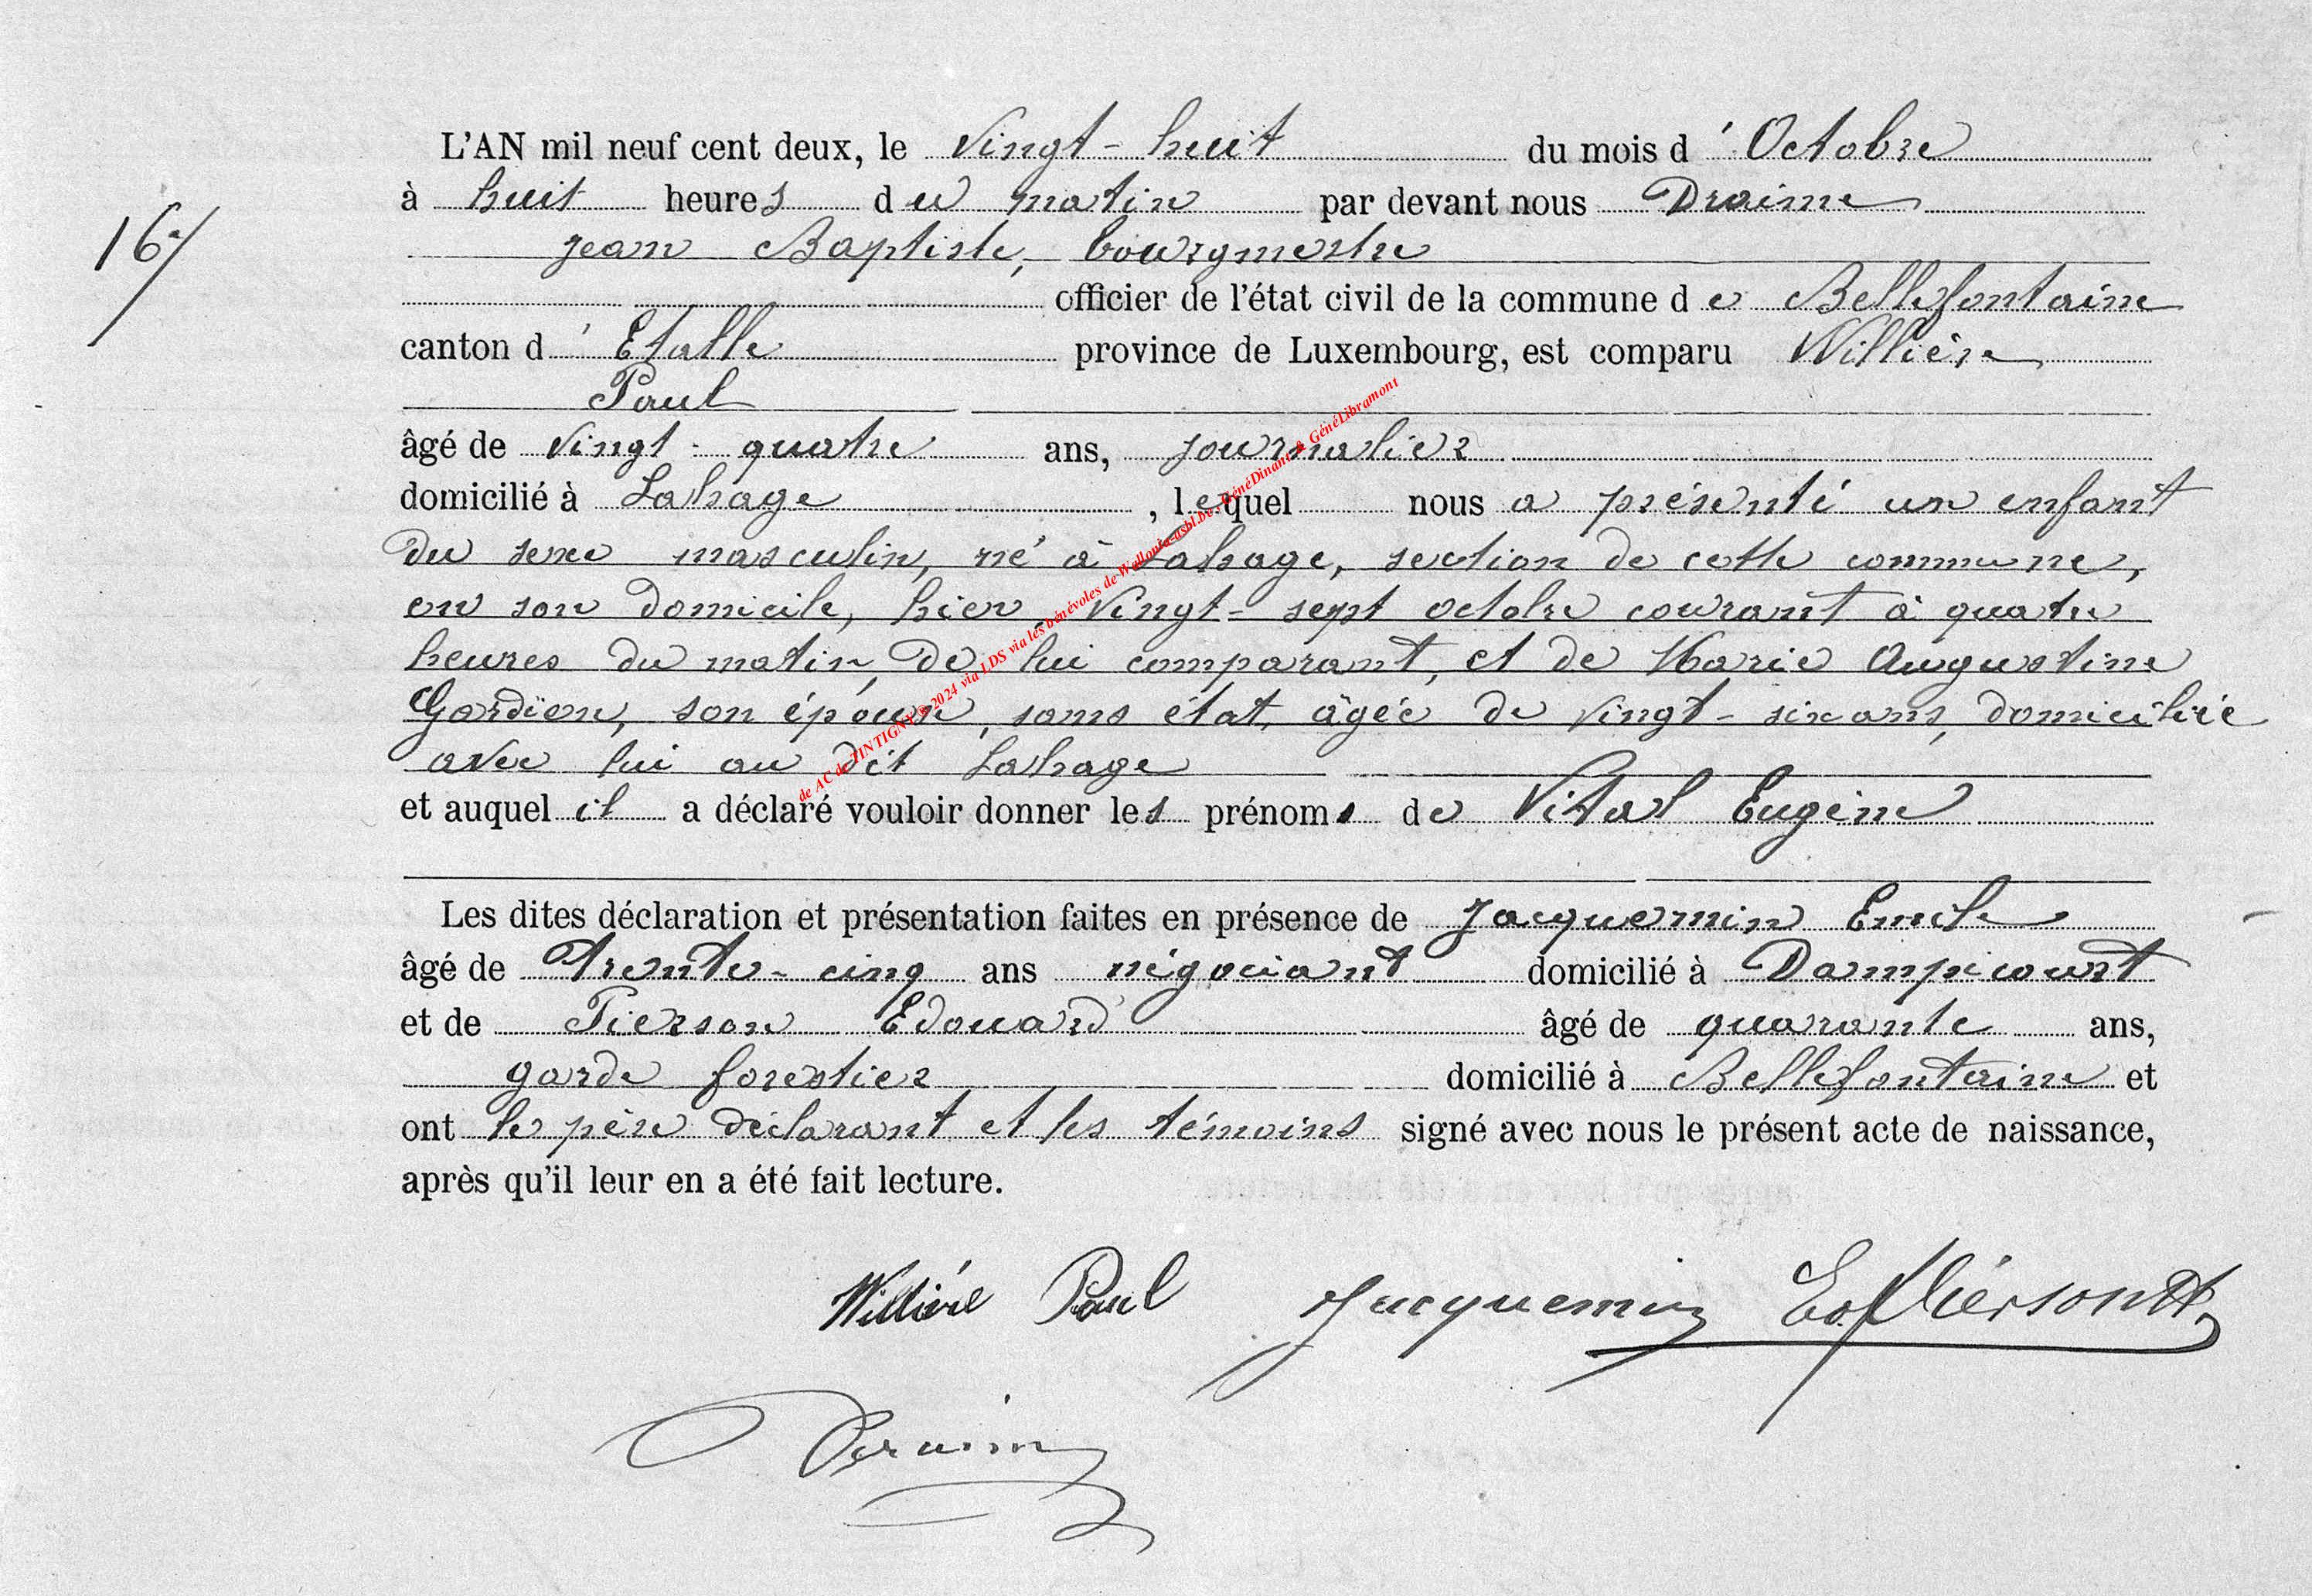 L'AN mil neuf cent deux, le Vingt-huit du mois d' Octobre
16/
à huit heures du matin par devant nous Draime
Jean Baptiste, bourgmestre
officier de l'état civil de la commune de Bellefontaine
canton d' Etalle province de Luxembourg, est comparu Willière
Paul
âgé de Vingt-quatre ans, journalier
domicilié à Lahage, lequel nous a présenté un enfant
du sexe masculin, né à Lahage, section de cette commune,
en son domicile, hier, Vingt-sept octobre courant à quatre
heures du matin, de lui comparant, et de Marie Augustine
Gordïen, son épouse, sans état, âgée de vingt-six ans, domiciliée
avec lui au dit Lahage
et auquel il a déclaré vouloir donner les prénoms de Vital Eugène
Les dites déclaration et présentation faites en présence de Jacquemin Emile
âgé de trente-cinq ans négociant domicilié à Dampicourt
et de Pierson Edouard âgé de quarante ans,
garde forestier domicilié à Bellefontaine et
ont le père déclarant et les témoins signé avec nous le présent acte de naissance,
après qu'il leur en a été fait lecture.
Willière Paul Jacquemin Ed. Pierson
Draime
de AC de TINTIGNY © 2024 via LDS via les bénévoles de Wallonia-asbl.be, GénéDinant & GénéLibramont